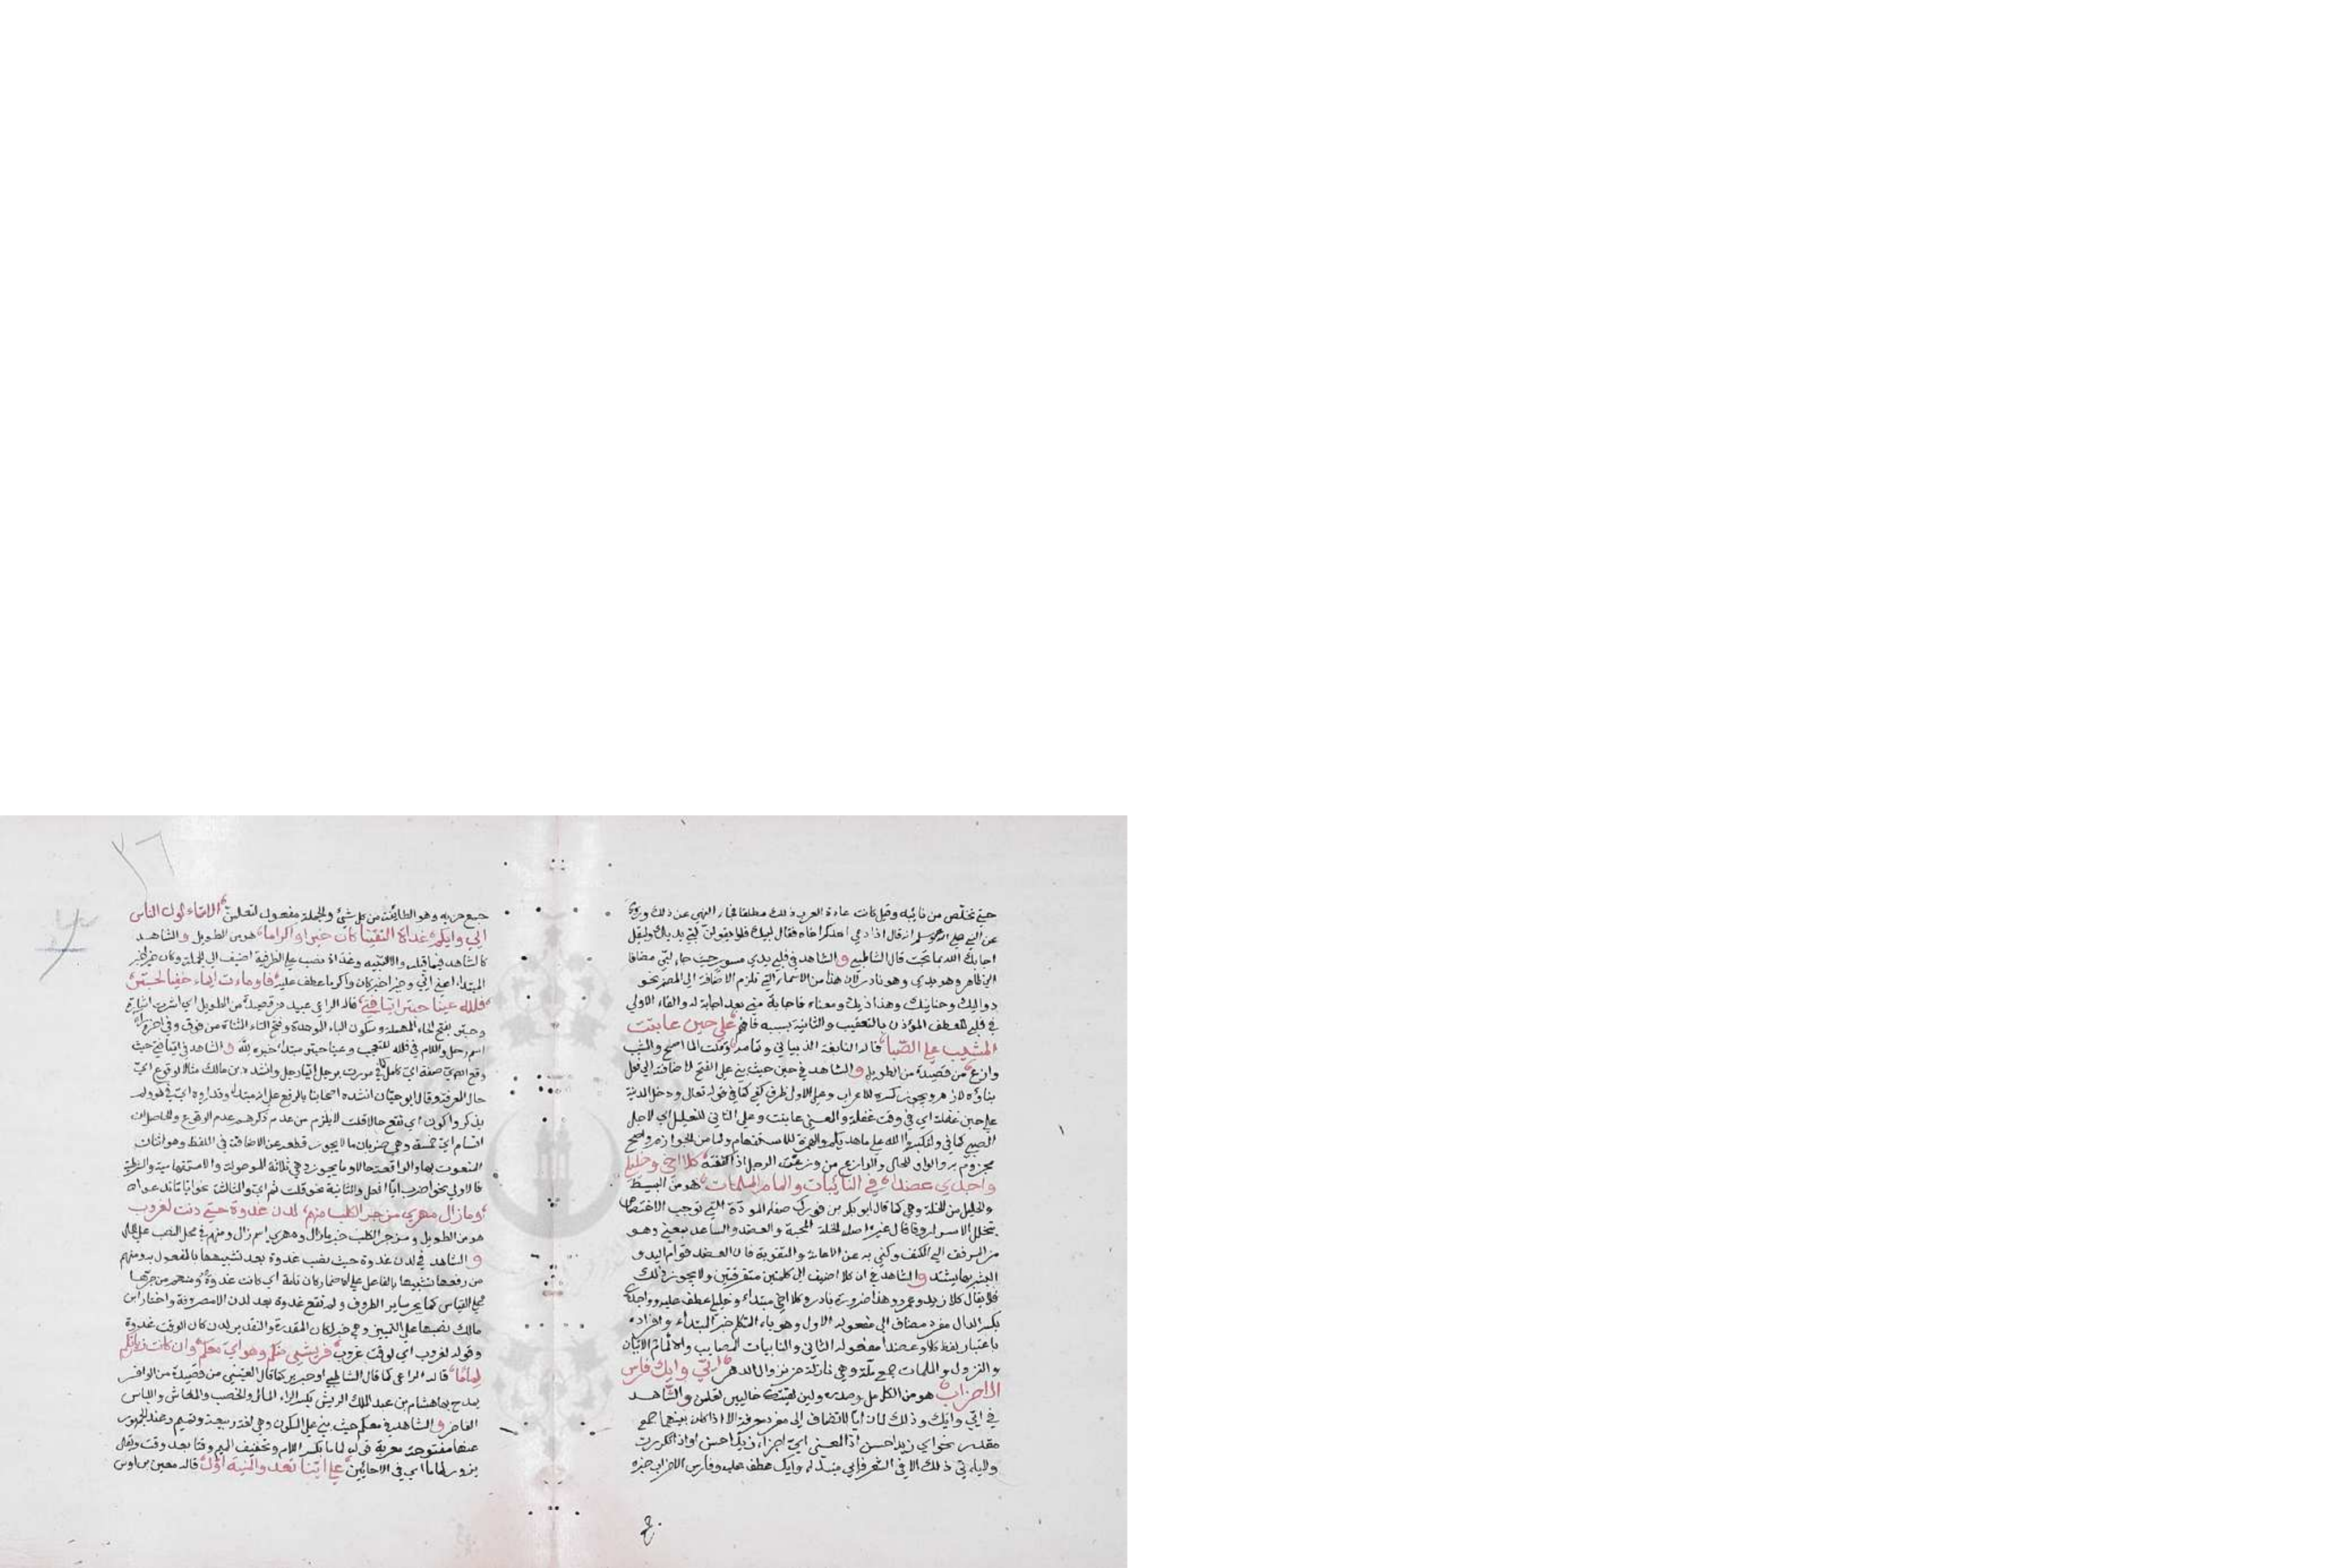 حتي تخلص من نايبه وقيل كانت عادة العرب ذلك مطلقا فجاز النهي عن ذلك وروي
عن النبي صلى الله عليه وسلم انه قال اذا دعي احدكم اخاه فقال لبيك فلا يقولن لبي يديك وليقل
اجابك الله بما تحب قال الشاطبي والشاهد في فلبي يدي مسور حيث جاء لبي مضافا
الى ظاهر وهو يدي وهو نادر لان هذا من الاسماء التي تلزم الاضافة الى المضمر نحو
دواليك وحنانيك وهذاذيك ومعناه فاجابة مني بعد اجابة له والفاء الاولي
في فلبي للعطف المؤذن بالتعقيب والثانية سببيه فافهم على حين عاتبت
المشيب على الصبا قاله النابغة الذبياني وتمامه وقلت الما اصح والشيب
وازع من قصيدة من الطويل والشاهد في حين حيث بني على الفتح لاضافته الى فعل
بناؤه لازم ويجوز كسره للاعراب وعلى الاول ظرف كفي كما في قوله تعالى ودخل المدينة
على حين غفلة اي في وقت غفلة والمعنى عاتبت وعلى الثاني للتعليل اي لاجل
الصبي كما في ولتكبروا الله على ما هديكم والهمزة للاستفهام ولما من الجوازم واصح
مجزوم به والواو للحال والوازع من وزعت الرجل اذا كففته كلا اخي وخليلي
واجدي عضدا في النايبات والمام الملمات هو من البسيط
والخليل من الخلة وهي كما قال ابو بكر بن فورك صفاء المودة التي توجب الاختصاص
بتخلل الاسرار وقال غيره اصل الخلة المحبة والعضد والساعد بمعنى وهو
من المرفق الى الكتف وكني به عن الاعانة والتقوية فان العضد قوام اليد و
بها يشتد والشاهد في ان كلا اضيف الى كلمتين متفرقتين ولا يجوز ذلك
فلا يقال كلا زيد وعمرو وهذا ضرورة نادرة وكلا اخي مبتداء وخليلي عطف عليه وواجدي
بكسر الدال مفرد مضاف الى مفعوله الاول وهو ياء المتكلم خبر المبتداء وافراده
باعتبار لفظ كلا وعضدا مفعوله الثاني والنايبات المصايب والالمام الاتيان
والنزول والملمات جمع ملمة وهي نازلة من نوازل الدهر ايي وايك فارس
الاحزاب هو من الكامل وصدره ولين لقيتك خاليين لتعلمن والشاهد
في ايي وايك وذلك لان ايا لا تضاف الى مفرد معرفة الا اذا كان بينهما جمع
مقدر نحو اي زيد احسن اذ المعنى اي اجزاء زيد احسن او اذا تكررت
ولا ياتي ذلك الا في الشعر فايي مبتداء وايك عطف عليه وفارس الاحزاب خبره
جمع حزب وهو الطائفة من كل شيء والجملة مفعول لتعلمن الا تساءلون الناس
ايي وايكم غداة التقينا كان خيرا واكرما هو من الطويل والشاهد
كالشاهد فيما قبله والا للتنبيه وغداة نصب على الظرفية اضيف الى الجملة وكان خبر
المبتداء اعني ايي وخيرا خبر كان واكرما عطف عليه فاومات ايماء خفيا لحبتر
فلله عينا حبتر ايما فتى قاله الراعي عبيد من قصيدة من الطويل اي اشرت اشارة
وحبتر بفتح الحاء المهملة وسكون الباء الموحدة وفتح التاء المثناة من فوق وفي اخره راء
اسم رجل واللام في فلله للتعجب وعينا حبتر مبتداء خبره لله والشاهد في ايما فتى حيث
وقع اي صفة اي كامل كما في مررت برجل ايما رجل وانشده ابن مالك مثالا لوقوع اي
حال المعرفة وقال ابو حيان انشده اصحابنا بالرفع على انه مبتداء
يذكروا كون اي تقع حالا قلت لا يلزم من عدم ذكرهم عدم الوقوع والحاصل ان
اقسام اي خمسة وهي ضربان ما لا يجوز قطعه عن الاضافة في اللفظ وهو اثنان
المنعوت بها والواقعة حالا وما يجوز وهي ثلاثة الموصولة والاستفهامية والشرطية
فالاولي نحو اضرب ايا افضل والثانية نحو قلت ثم اي والثالثة نحو ايا ما تدعوا
وما زال مهري مزجر الكلب منهم لدن غدوة حتي دنت لغروب
هو من الطويل ومزجر الكلب خبر ما زال ومهري اسم زال ومنهم في محل النصب على الحال
والشاهد في لدن غدوة حيث نصب غدوة بعد تشبيهها بالمفعول به ومنهم
من رفعها تشبيها بالفاعل على اضمار كان تامة اي كانت غدوة ومنهم من جرها
على القياس كما يجر ساير الظروف ولم تقع غدوة بعد لدن الا مصروفة واختار ابن
مالك نصبها على التمييز وهي خبر لكان المقدرة والتقدير لدن كان الوقت غدوة
وقوله لغروب اي لوقت غروب فريشي منكم وهواي معكم وان كانت زيارتكم
لماما قاله الراعي كما قال الشاطبي او جرير كما قال العيني من قصيدة من الوافر
يمدح بها هشام بن عبد الملك الريش بكسر الراء المال والخصب والمعاش واللباس
الفاخر والشاهد في معكم حيث بني على السكون وهي لغة ربيعة وتميم وعند الجمهور
عينها مفتوحة معربة قوله لماما بكسر اللام وتخفيف الميم وقتا بعد وقت ويقال
يزور لماما اي في الاحايين على اينا تعدو المنية اول قاله معن بن اوس